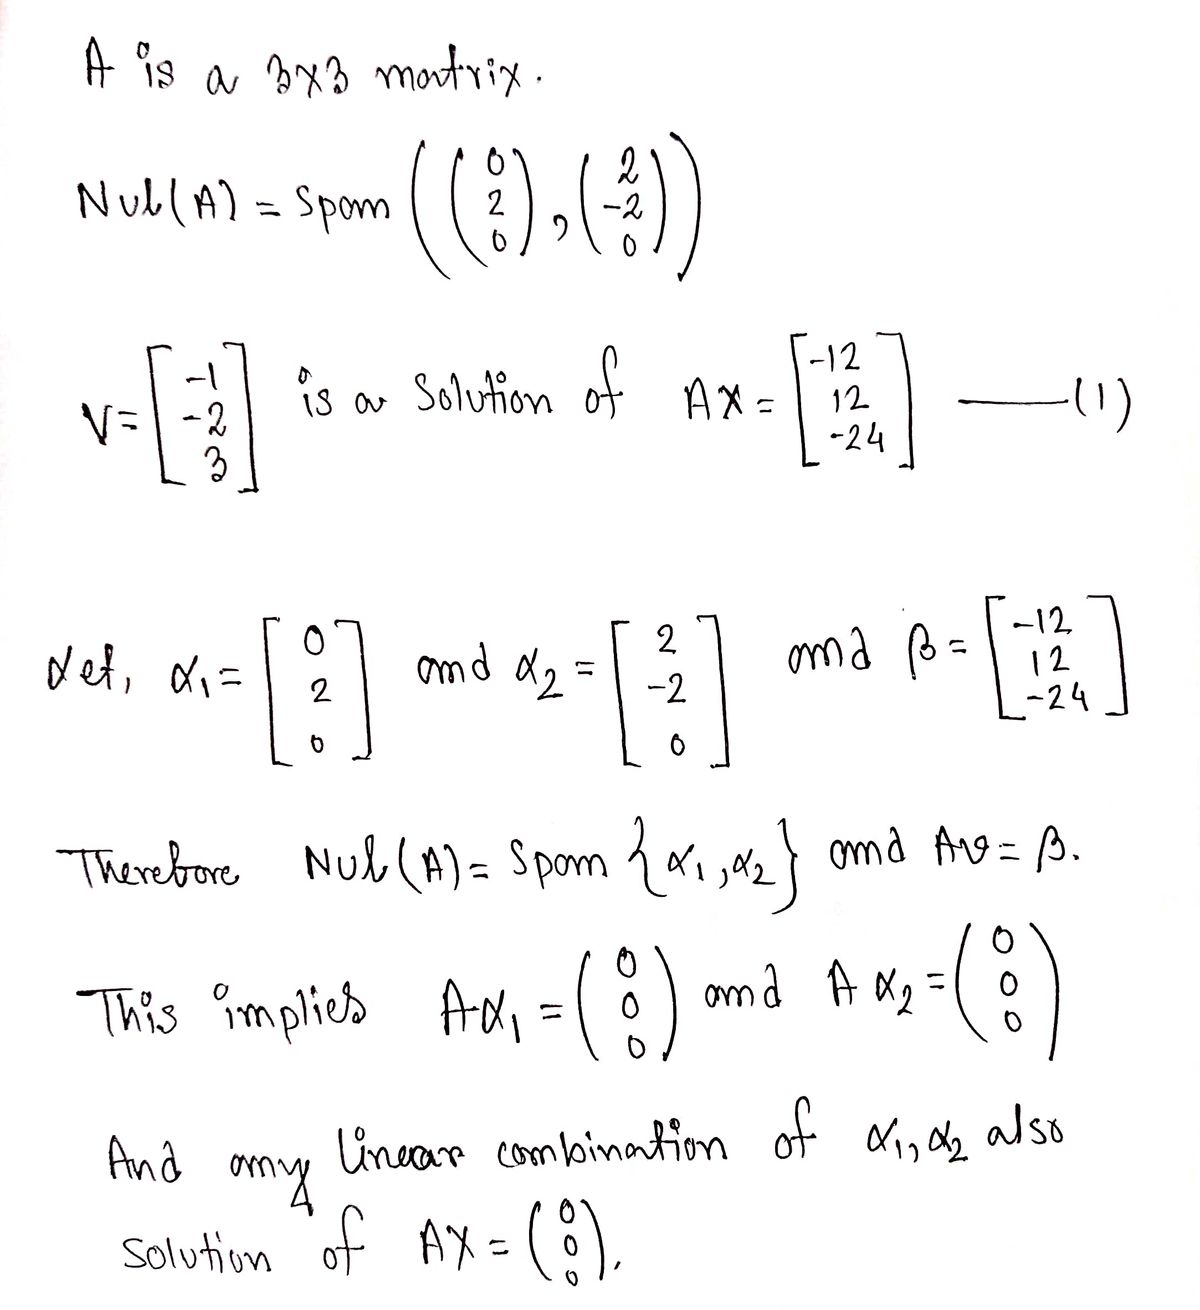 A is a 3x3 matrix.
Nul(A) = Span ( ( 0 2 0 ), ( 2 -2 0 ) )
V = [ -1 -2 3 ] is a solution of AX = [ -12 12 -24 ] —(1)
Let, α₁ = [ 0 2 0 ] and α₂ = [ 2 -2 0 ] and β = [ -12 12 -24 ]
Therefore Nul(A) = Span {α₁, α₂} and Av = β.
This implies Aα₁ = ( 0 0 0 ) and Aα₂ = ( 0 0 0 )
And any linear combination of α₁, α₂ also
solution of AX = ( 0 0 0 ).